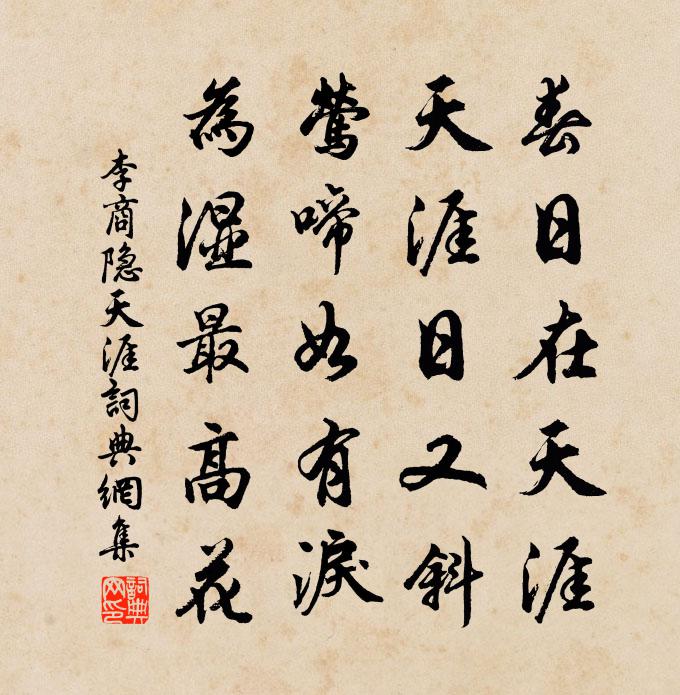 春日在天涯
天涯日又斜
莺啼如有淚
為湿最高花
李商隐天涯詞典網集
詞典网印